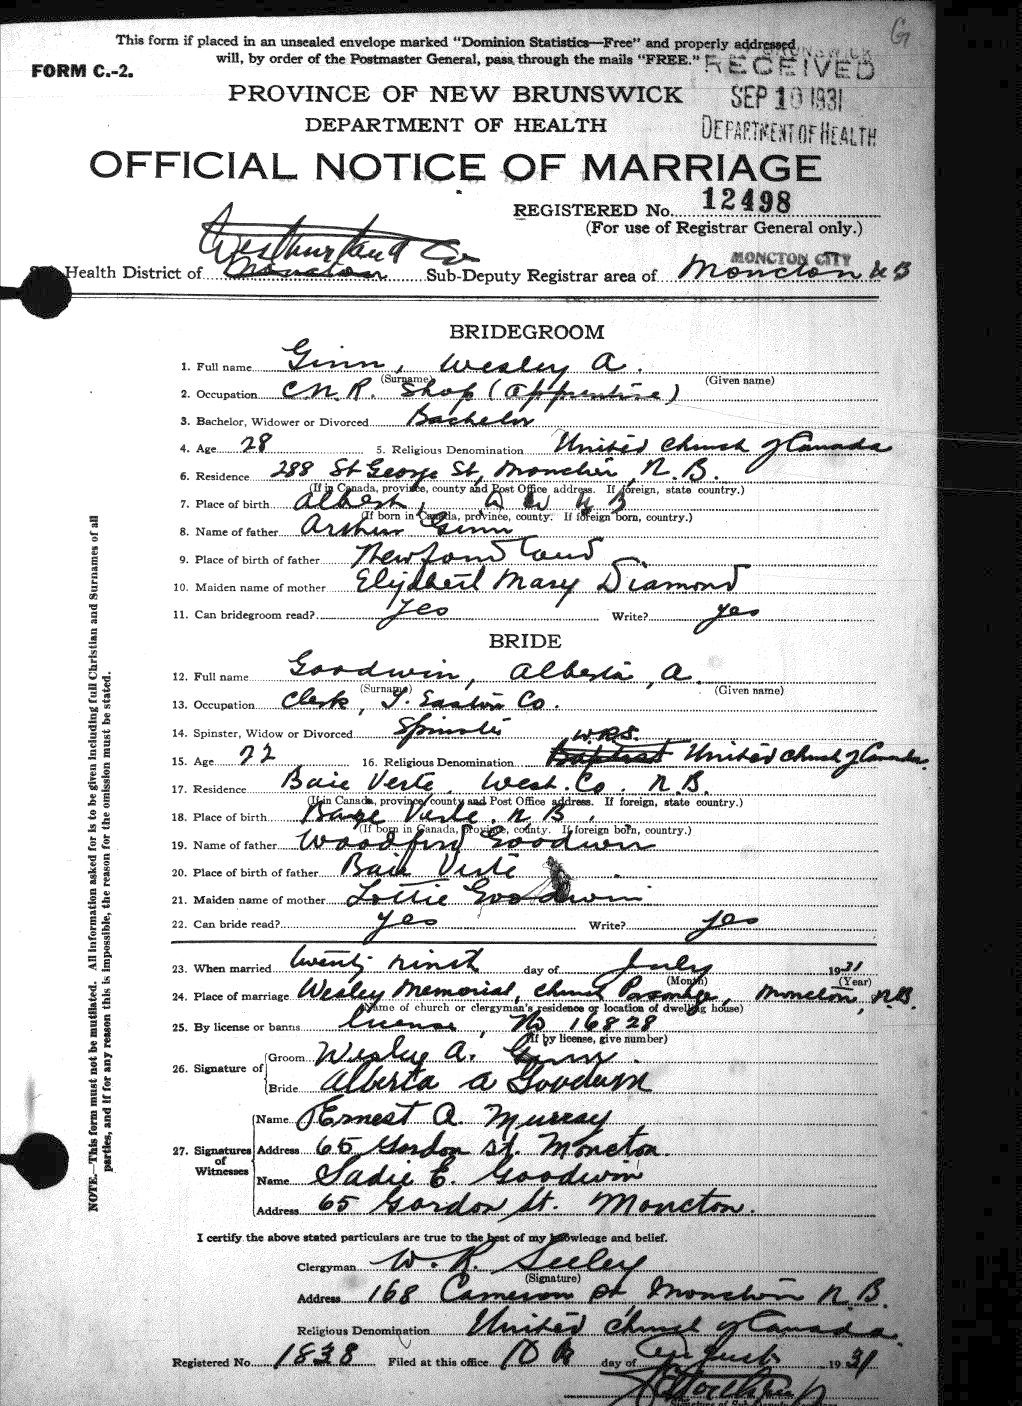 G
This form if placed in an unsealed envelope marked "Dominion Statistics—Free" and properly addressed
will, by order of the Postmaster General, pass through the mails "FREE."
FORM C.-2.
RECEIVED
SEP 10 1931
DEPARTMENT OF HEALTH
PROVINCE OF NEW BRUNSWICK
DEPARTMENT OF HEALTH
OFFICIAL NOTICE OF MARRIAGE
REGISTERED No. 12498
(For use of Registrar General only.)
Westmorland Co
MONCTON CITY
Health District of Moncton Sub-Deputy Registrar area of Moncton N B
BRIDEGROOM
1. Full name Ginn, Wesley A.
(Surname) (Given name)
2. Occupation C.N.R. Shop (Apprentice)
3. Bachelor, Widower or Divorced Bachelor
4. Age 28 5. Religious Denomination United Church of Canada
6. Residence 288 St George St, Moncton, N.B.
(If in Canada, province, county and Post Office address. If foreign, state country.)
7. Place of birth Albert, N B
(If born in Canada, province, county. If foreign born, country.)
8. Name of father Arthur Ginn
9. Place of birth of father Newfoundland
10. Maiden name of mother Elizabeth Mary Diamond
11. Can bridegroom read? Yes Write? yes
BRIDE
12. Full name Goodwin, Alberta, A.
(Surname) (Given name)
13. Occupation Clerk, T. Eaton Co.
14. Spinster, Widow or Divorced Spinster
W.R.S.
15. Age 22 16. Religious Denomination Baptist United Church of Canada.
17. Residence Baie Verte, West. Co. N.B.
(If in Canada, province, county and Post Office address. If foreign, state country.)
18. Place of birth Baye Verte, N.B.
(If born in Canada, province, county. If foreign born, country.)
19. Name of father Woodford Goodwin
20. Place of birth of father Baie Verte
21. Maiden name of mother Lottie Goodwin
22. Can bride read? yes Write? yes
23. When married twenty ninth day of July 1931
(Month) (Year)
24. Place of marriage Wesley Memorial, Church Parsonage, Moncton, N.B.
(Name of church or clergyman's residence or location of dwelling house)
25. By license or banns license, No 16828
(If by license, give number)
26. Signature of Groom Wesley A. Ginn.
Bride Alberta A Goodwin
27. Signatures of Witnesses
Name Ernest A. Murray
Address 65 Gordon St. Moncton.
Name Sadie E. Goodwin
Address 65 Gordon St. Moncton.
I certify the above stated particulars are true to the best of my knowledge and belief.
Clergyman W. R. Seeley
(Signature)
Address 168 Cameron St, Moncton N.B.
Religious Denomination United Church of Canada.
Registered No. 1838 Filed at this office 10 day of August 1931
NOTE.—This form must not be mutilated. All information asked for is to be given including full Christian and Surnames of all
parties, and if for any reason this is impossible, the reason for the omission must be stated.